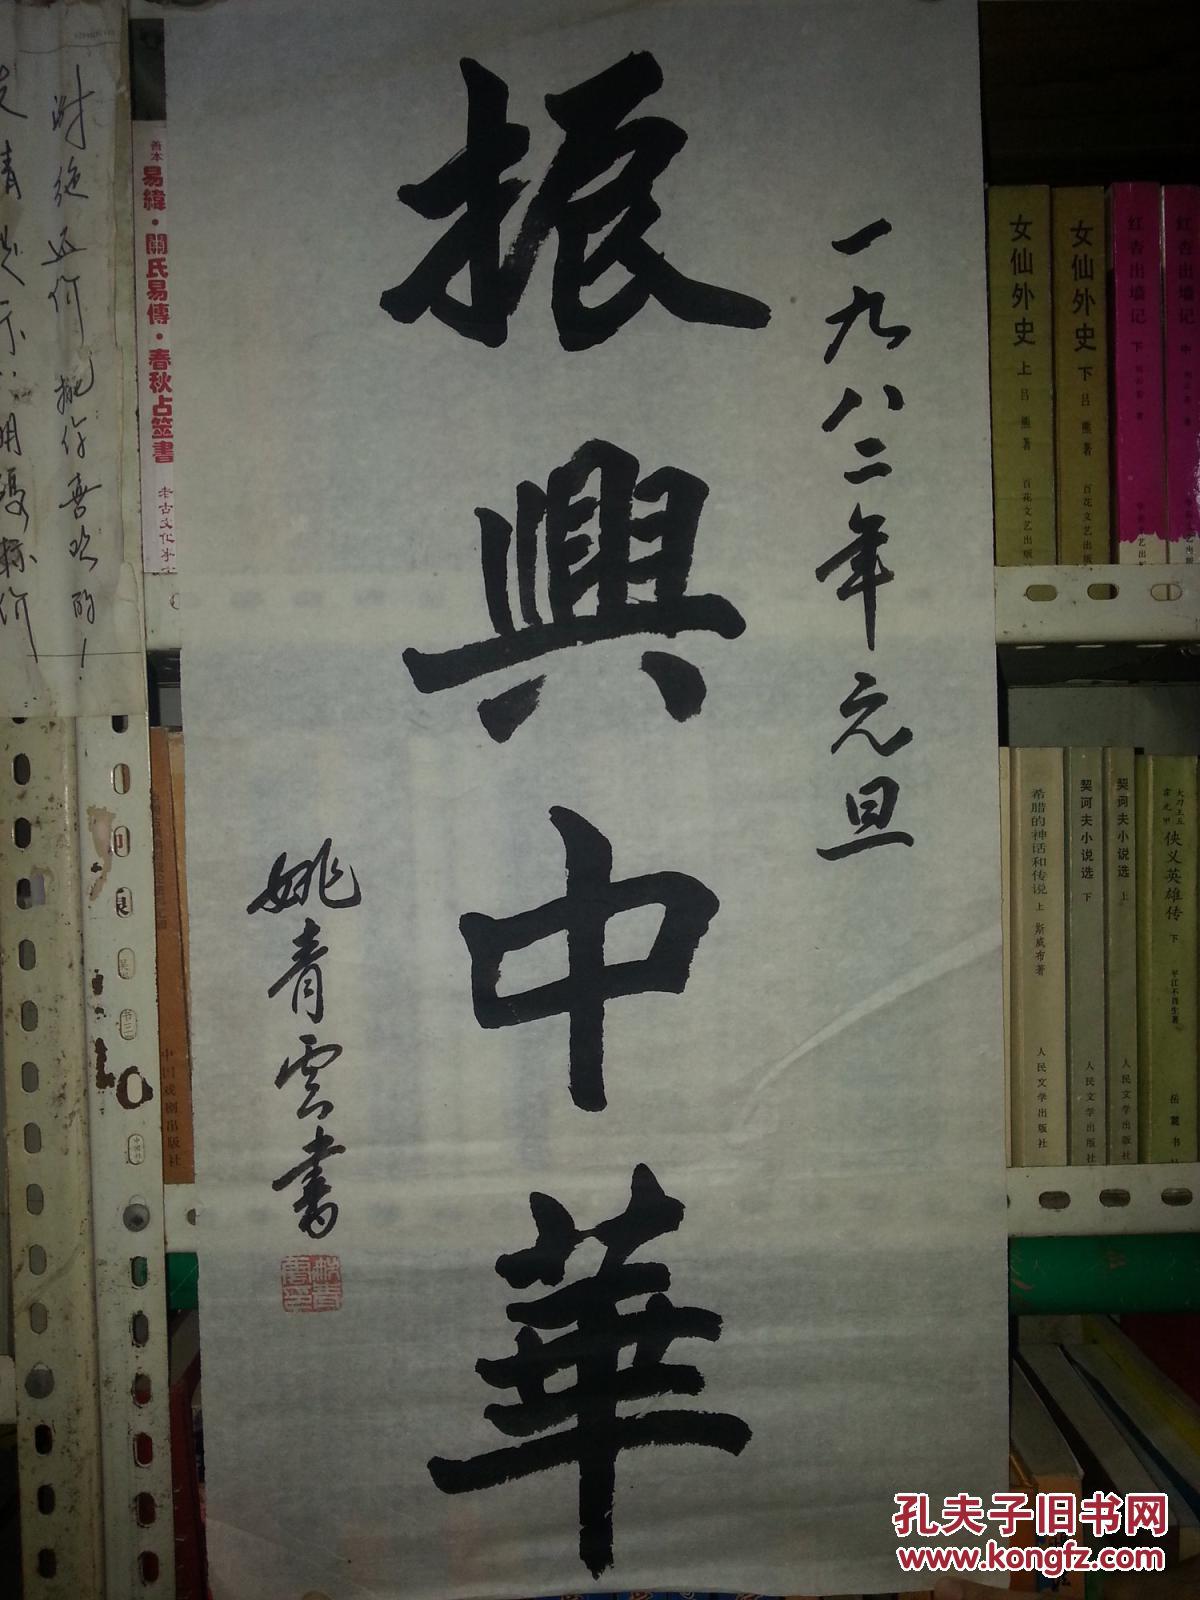 振興中華
一九八二年元旦
姚青雲書
谢绝还价 挑你喜欢的！
善本
易緯·關氏易傳·春秋占筮書
老古文化
女仙外史 上 吕熊著 百花文艺出版
女仙外史 下 吕熊著 百花文艺出版
红杏出墙记 下
红杏出墙记 中
希腊的神话和传说 上 斯威布著 人民文学出版社
契诃夫小说选 下 人民文学出版社
契诃夫小说选 上 人民文学出版社
大刀王五
霍元甲
侠义英雄传 下 平江不肖生著 岳麓书
中国戏剧出版社
孔夫子旧书网
www.kongfz.com